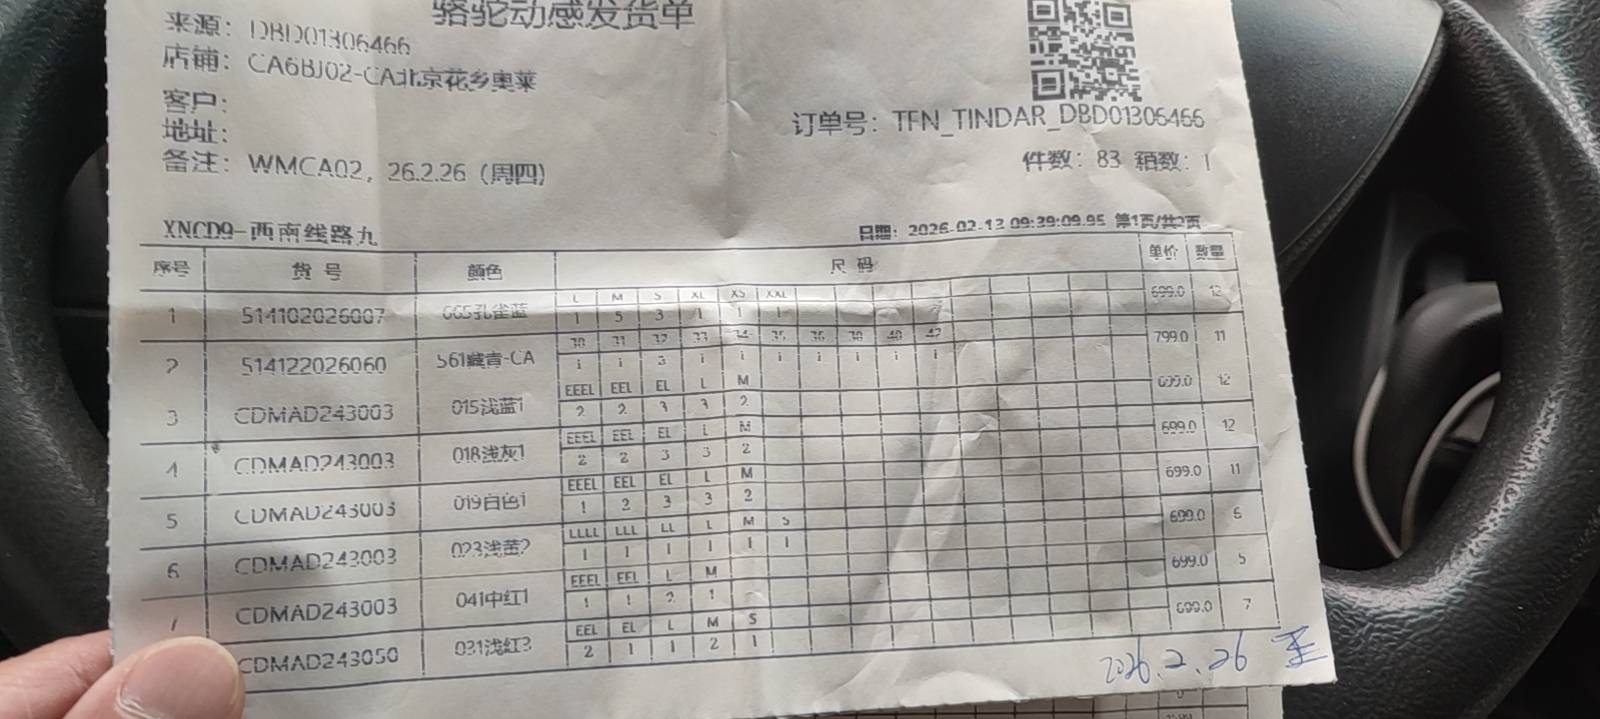 骆驼动感发货单
来源: DBD01306466
店铺: CA6BJ02-CA北京花乡奥莱
客户:
地址:
订单号: TFN_TINDAR_DBD01306466
备注: WMCA02, 26.2.26 (周四)
件数: 83 箱数: 1
XNCD9-西南线路九
日期: 2026-02-13 09:39:09.95 第1页/共2页
序号 货号 颜色 尺码 单价 数量
L M S XL XS XXL
1 514102026007 665孔雀蓝 1 5 3 1 1 1 699.0 12
30 31 32 33 34 35 36 38 40 42
2 514122026060 561藏青-CA 1 1 3 1 1 1 1 1 1 1 799.0 11
EEEL EEL EL L M
3 CDMAD243003 015浅蓝1 2 2 3 3 2 699.0 12
EEEL EEL EL L M
4 CDMAD243003 018浅灰1 2 2 3 3 2 699.0 12
EEEL EEL EL L M
5 CDMAD243003 019白色1 1 2 3 3 2 699.0 11
LLLL LLL LL L M S
6 CDMAD243003 023浅黄2 1 1 1 1 1 1 699.0 6
EEEL EEL L M
7 CDMAD243003 041中红1 1 1 2 1 699.0 5
EEL EL L M S
CDMAD243050 031浅红3 2 1 1 2 1 699.0 7
2026.2.26